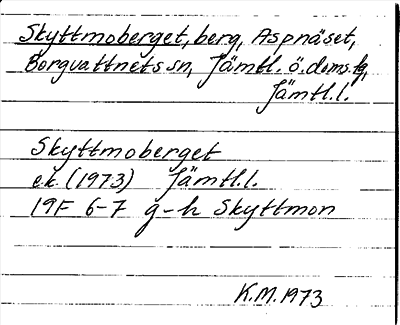 Skyttmoberget, berg, Aspnäset,
Borgvattnets sn, Jämtl. ö. doms.tg,
Jämtl.l.
Skyttmoberget
e.k. (1973) Jämtl.l.
19F 6-7 g-h Skyttmon
K.M. 1973